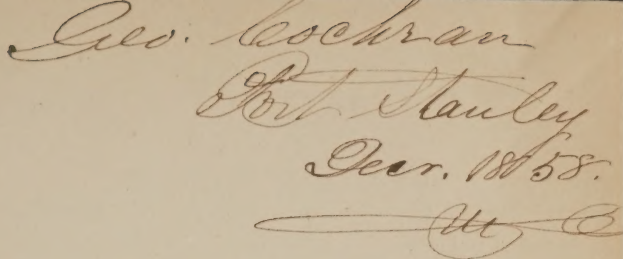 Geo. Cochran
Port Stanley
Decr. 1858.